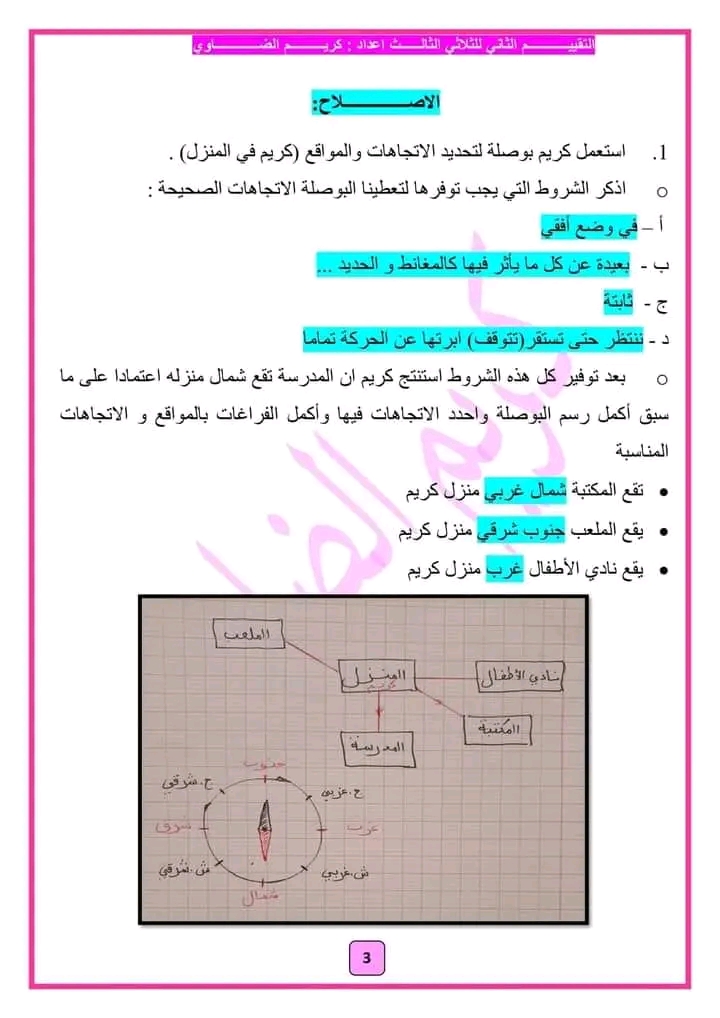 التقييم الثاني للثلاثي الثالث اعداد : كريم الضاوي
الاصلاح:
1. استعمل كريم بوصلة لتحديد الاتجاهات والمواقع (كريم في المنزل) .
o اذكر الشروط التي يجب توفرها لتعطينا البوصلة الاتجاهات الصحيحة :
أ – في وضع أفقي
ب - بعيدة عن كل ما يأثر فيها كالمغانط و الحديد ...
ج - ثابتة
د - ننتظر حتى تستقر(تتوقف) ابرتها عن الحركة تماما
o بعد توفير كل هذه الشروط استنتج كريم ان المدرسة تقع شمال منزله اعتمادا على ما
سبق أكمل رسم البوصلة واحدد الاتجاهات فيها وأكمل الفراغات بالمواقع و الاتجاهات
المناسبة
• تقع المكتبة شمال غربي منزل كريم
• يقع الملعب جنوب شرقي منزل كريم
• يقع نادي الأطفال غرب منزل كريم
الملعب
نادي الأطفال
المنزل
كريم
المكتبة
المدرسة
جنوب
ج.شرقي
ج.غربي
شرق
غرب
ش.شرقي
ش.غربي
شمال
3
كريم الضا